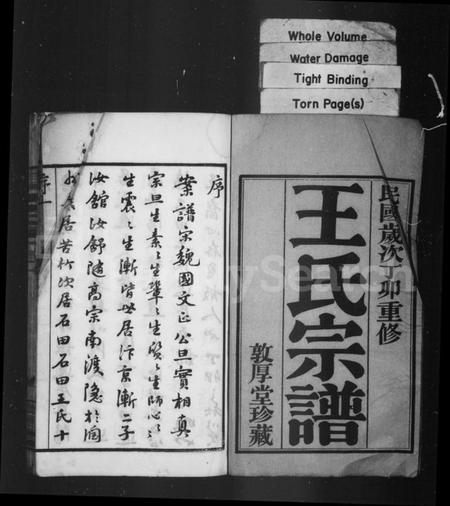 Whole Volume
Water Damage
Tight Binding
Torn Page(s)
民國歲次丁卯重修
王氏宗譜
敦厚堂珍藏
序
案譜宋魏國文正公旦實相真
宗旦生素〻生鞏〻生質〻生師心〻
生震〻生漸皆世居汴京漸二子
汝錧汝舒随高宗南渡隐於囦
居苦竹次居石田石田王氏十
序一